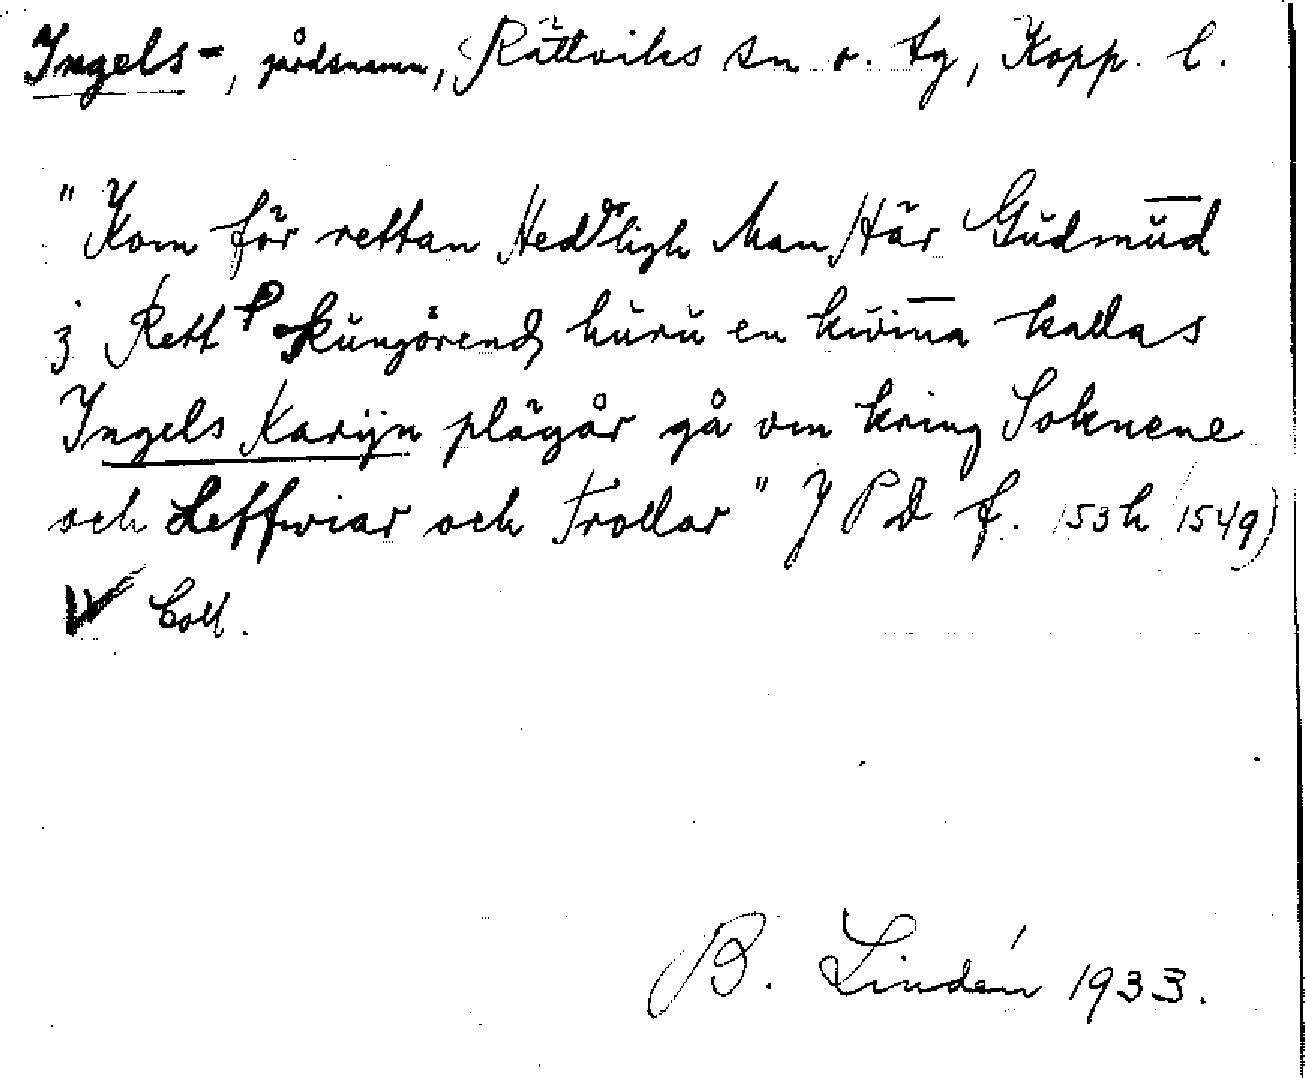 Ingels-, gårdsnamn, Rättviks sn o. tg, Kopp. l.
"Kom för rettan Hedrligh Man Här Gŭdmŭd
j Rett kŭngörend hŭrŭ en kwina kallas
Ingels Karijn plägår gå om kring Soknene
och Leffwiar och Trollar" J P D f. 153 h (1549)
Coll.
B. Lindén 1933.